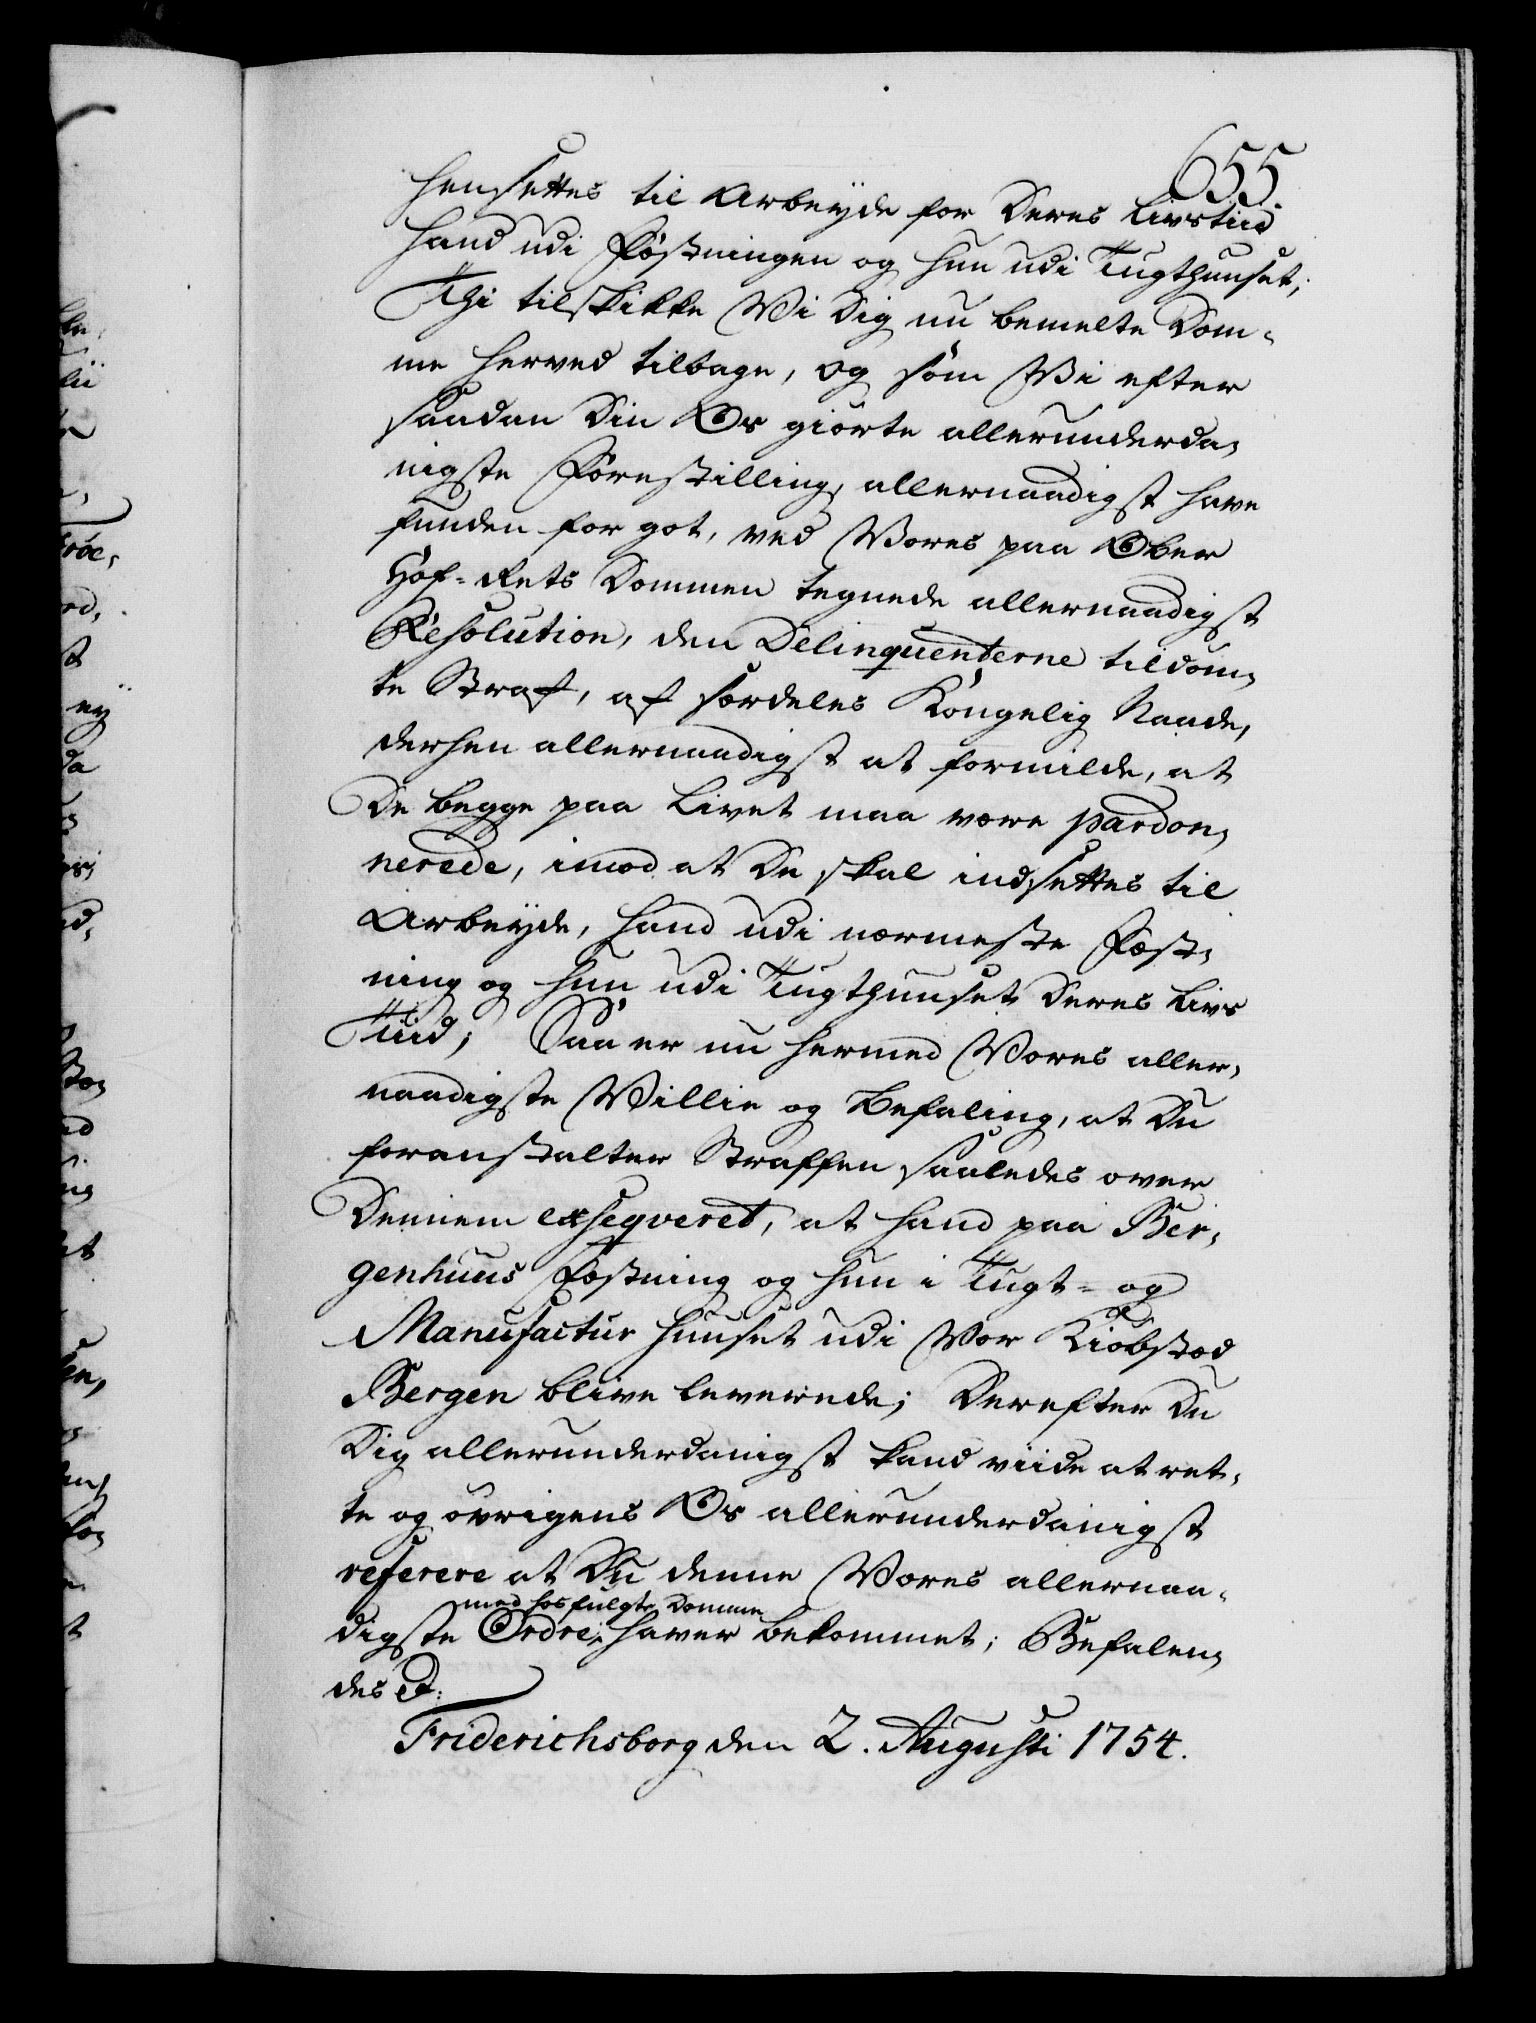 655.
hensettes til Arbeyde for Deres Livstiid
Hand udi Fæstningen og hun udi Tugthuuset;
Thi tilskikke Vi Dig nu bemelte Dom-
me herved tilbage, og som Vi efter
saadan Din Os giorte allerunderda-
nigste Forestilling, allernaadigst have
funden for got, ved Vores paa Ober
Hof-Rets Dommen tegnede allernaadigst
Resolution, den Delinquenterne tildöm-
te Straf, af særdeles Kongelig Naade,
derhen allernaadigst at formilde, at
De begge paa Livet maa være pardon-
nerede, imod at De skal indsettes til
Arbeyde, Hand udi nærmeste Fæst-
ning og hun udi Tugthuuset Deres Livs
Tiid; Saa er nu hermed Vores aller-
naadigste Villie og Befaling, at Du
foranstalter Straffen saaledes over
Dennem exseqveret, at hand paa Ber-
genhuus Fæstning og hun i Tugt- og
Manufactur Huuset udi Vor Kiøbstæd
Bergen blive leverede; Derefter Du
Dig allerunderdanigst kand viide at ret-
te og övrigens Os allerunderdanigst
referere at Du denne Vores allernaa-
med hosfulgte Domme
digste Ordre, haver bekommet; Befalen-
des &:
Friderichsborg den 2. Augusti 1754.